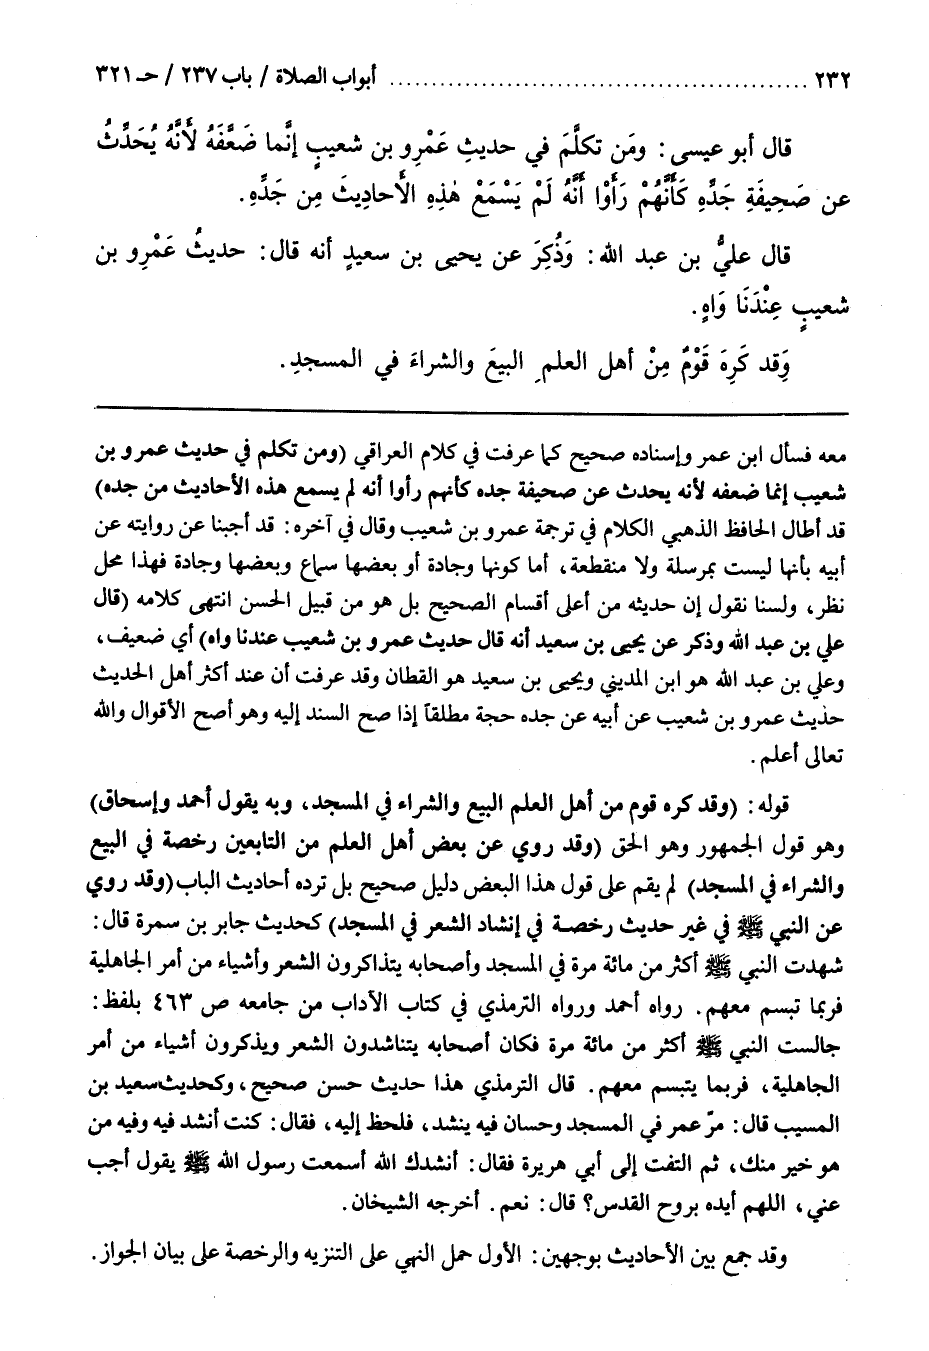 ٢٣٢ ........................................ أبواب الصلاة / باب ٢٣٧ / حـ ٣٢١
قال أبو عيسى: ومَن تكلَّمَ في حديثِ عَمْرِو بن شعيبٍ إنَّما ضَعَّفَهُ لأَنَّهُ يُحَدِّثُ
عن صَحِيفَةِ جَدِّهِ كَأَنَّهُمْ رَأَوْا أَنَّهُ لَمْ يَسْمَعْ هٰذِهِ الأَحادِيثَ مِن جَدِّهِ.
قال عليُّ بن عبد الله: وَذُكِرَ عن يحيى بن سعيدٍ أنه قال: حديثُ عَمْرِو بن
شعيبٍ عِنْدَنَا وَاهٍ.
وَقد كَرِهَ قَوْمٌ مِنْ أهل العلمِ البيعَ والشراءَ في المسجدِ.
معه فسأل ابن عمر وإسناده صحيح كما عرفت في كلام العراقي (ومن تكلم في حديث عمرو بن
شعيب إنما ضعفه لأنه يحدث عن صحيفة جده كأنهم رأوا أنه لم يسمع هذه الأحاديث من جده)
قد أطال الحافظ الذهبي الكلام في ترجمة عمرو بن شعيب وقال في آخره: قد أجبنا عن روايته عن
أبيه بأنها ليست بمرسلة ولا منقطعة، أما كونها وجادة أو بعضها سماع وبعضها وجادة فهذا محل
نظر، ولسنا نقول إن حديثه من أعلى أقسام الصحيح بل هو من قبيل الحسن انتهى كلامه (قال
علي بن عبد الله وذكر عن يحيى بن سعيد أنه قال حديث عمرو بن شعيب عندنا واه) أي ضعيف،
وعلي بن عبد الله هو ابن المديني ويحيى بن سعيد هو القطان وقد عرفت أن عند أكثر أهل الحديث
حديث عمرو بن شعيب عن أبيه عن جده حجة مطلقاً إذا صح السند إليه وهو أصح الأقوال والله
تعالى أعلم.
قوله: (وقد كره قوم من أهل العلم البيع والشراء في المسجد، وبه يقول أحمد وإسحاق)
وهو قول الجمهور وهو الحق (وقد روي عن بعض أهل العلم من التابعين رخصة في البيع
والشراء في المسجد) لم يقم على قول هذا البعض دليل صحيح بل ترده أحاديث الباب (وقد روي
عن النبي ﷺ في غير حديث رخصة في إنشاد الشعر في المسجد) كحديث جابر بن سمرة قال:
شهدت النبي ﷺ أكثر من مائة مرة في المسجد وأصحابه يتذاكرون الشعر وأشياء من أمر الجاهلية
فربما تبسم معهم. رواه أحمد ورواه الترمذي في كتاب الآداب من جامعه ص ٤٦٣ بلفظ:
جالست النبي ﷺ أكثر من مائة مرة فكان أصحابه يتناشدون الشعر ويذكرون أشياء من أمر
الجاهلية، فربما يتبسم معهم. قال الترمذي هذا حديث حسن صحيح، وكحديث سعيد بن
المسيب قال: مرّ عمر في المسجد وحسان فيه ينشد، فلحظ إليه، فقال: كنت أنشد فيه وفيه من
هو خير منك، ثم التفت إلى أبي هريرة فقال: أنشدك الله أسمعت رسول الله ﷺ يقول أجب
عني، اللهم أيده بروح القدس؟ قال: نعم. أخرجه الشيخان.
وقد جمع بين الأحاديث بوجهين: الأول حمل النهي على التنزيه والرخصة على بيان الجواز.